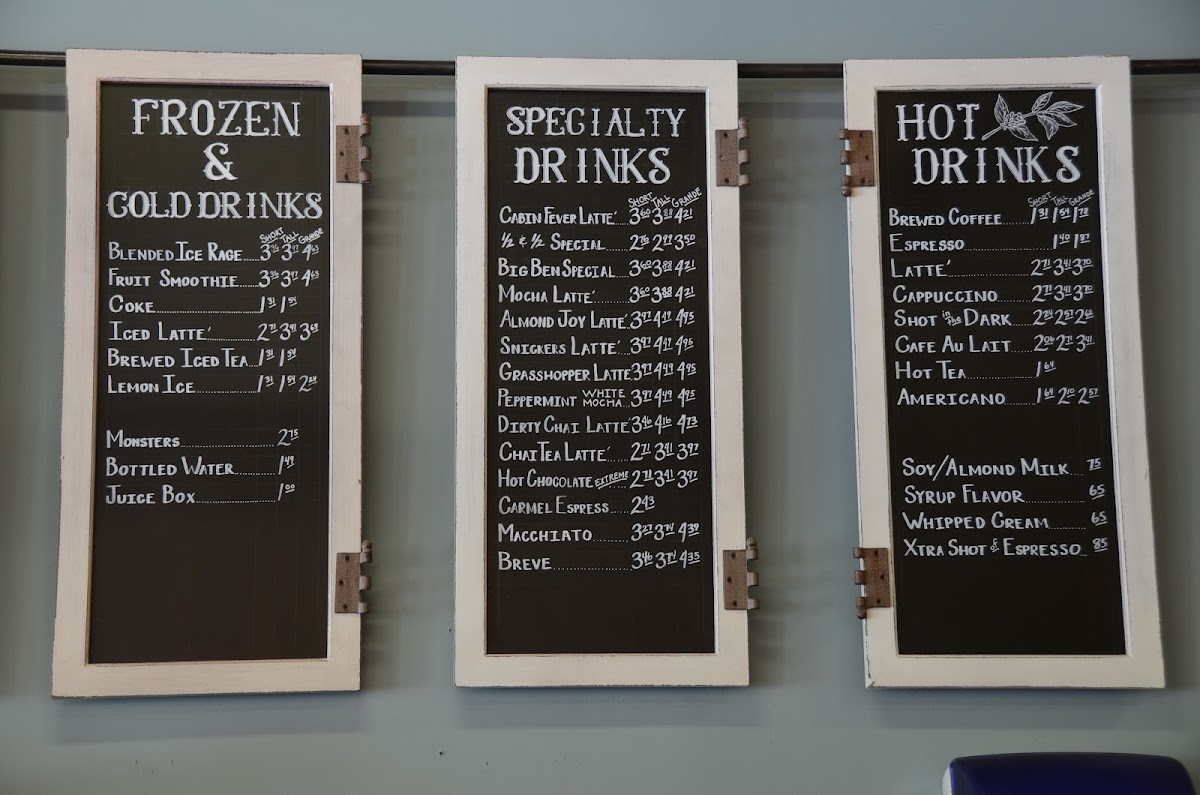 FROZEN
&
COLD DRINKS
SHORT TALL GRANDE
BLENDED ICE RAGE 3.36 3.97 4.63
FRUIT SMOOTHIE 3.36 3.97 4.63
COKE 1.31 1.54
ICED LATTE' 2.71 3.41 3.69
BREWED ICED TEA 1.31 1.54
LEMON ICE 1.31 1.54 2.54
MONSTERS 2.75
BOTTLED WATER 1.49
JUICE BOX 1.00
SPECIALTY
DRINKS
SHORT TALL GRANDE
CABIN FEVER LATTE' 3.60 3.88 4.21
½ & ½ SPECIAL 2.76 2.99 3.50
BIG BEN SPECIAL 3.60 3.88 4.21
MOCHA LATTE' 3.60 3.88 4.21
ALMOND JOY LATTE' 3.97 4.49 4.95
SNICKERS LATTE' 3.97 4.49 4.95
GRASSHOPPER LATTE 3.97 4.49 4.95
PEPPERMINT WHITE MOCHA 3.97 4.49 4.95
DIRTY CHAI LATTE' 3.46 4.16 4.73
CHAI TEA LATTE' 2.71 3.41 3.97
HOT CHOCOLATE EXTREME 2.71 3.41 3.97
CARMEL ESPRESS 2.43
MACCHIATO 3.27 3.74 4.39
BREVE 3.46 3.74 4.35
HOT
DRINKS
SHORT TALL GRANDE
BREWED COFFEE 1.31 1.54 1.78
ESPRESSO 1.40 1.87
LATTE' 2.71 3.41 3.70
CAPPUCCINO 2.71 3.41 3.70
SHOT in the DARK 2.24 2.57 2.62
CAFE AU LAIT 2.06 2.71 3.41
HOT TEA 1.64
AMERICANO 1.64 2.10 2.57
SOY/ALMOND MILK 75
SYRUP FLAVOR 65
WHIPPED CREAM 65
XTRA SHOT OF ESPRESSO 85